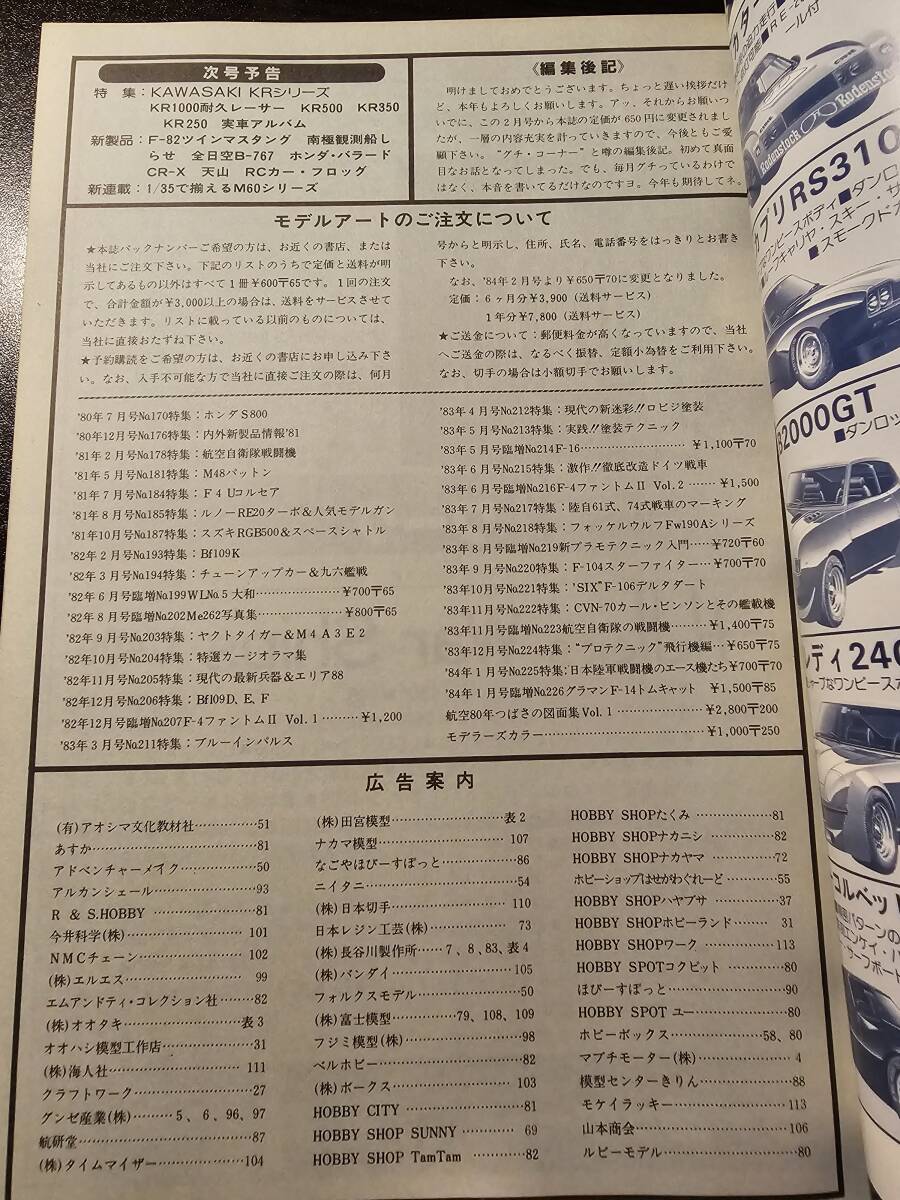 次号予告
特 集：KAWASAKI KRシリーズ
KR1000耐久レーサー KR500 KR350
KR250 実車アルバム
新製品：F-82ツインマスタング 南極観測船し
らせ 全日空B-767 ホンダ・バラード
CR-X 天山 RCカー・フロッグ
新連載：1/35で揃えるM60シリーズ
《編集後記》
明けましておめでとうございます。ちょっと遅い挨拶だけ
ど、本年もよろしくお願いします。アッ、それからお願いつ
いでに、この2月から本誌の定価が650円に変更されまし
たが、一層の内容充実を計っていきますので、今後ともご愛
願下さい。“グチ・コーナー”と噂の編集後記。初めて真面
目なお話となってしまった。でも、毎月グチっているわけで
はなく、本音を書いてるだけなのですヨ。今年も期待してネ。
モデルアートのご注文について
★本誌バックナンバーご希望の方は、お近くの書店、または
当社にご注文下さい。下記のリストのうちで定価と送料が明
示してあるもの以外はすべて1冊¥600〒65です。1回の注文
で、合計金額が¥3,000以上の場合は、送料をサービスさせて
いただきます。リストに載っている以前のものについては、
当社に直接おたずね下さい。
★予約購読をご希望の方は、お近くの書店にお申し込み下さ
い。なお、入手不可能な方で当社に直接ご注文の際は、何月
号からと明示し、住所、氏名、電話番号をはっきりとお書き
下さい。
なお、'84年2月号より¥650〒70に変更となりました。
定価：6ヶ月分¥3,900（送料サービス）
1年分¥7,800（送料サービス）
★ご送金について：郵便料金が高くなっていますので、当社
へご送金の際は、なるべく振替、定額小為替をご利用下さい。
なお、切手の場合は小額切手でお願いします。
'80年7月号No.170特集：ホンダS800
'80年12月号No.176特集：内外新製品情報'81
'81年2月号No.178特集：航空自衛隊戦闘機
'81年5月号No.181特集：M48パットン
'81年7月号No.184特集：F4Uコルセア
'81年8月号No.185特集：ルノーRE20ターボ&人気モデルガン
'81年10月号No.187特集：スズキRGB500&スペースシャトル
'82年2月号No.193特集：Bf109K
'82年3月号No.194特集：チューンアップカー&九六艦戦
'82年6月号臨増No.199WLNo.5大和…………………¥700〒65
'82年8月号臨増No.202Me262写真集…………………¥800〒65
'82年9月号No.203特集：ヤクトタイガー&M4A3E2
'82年10月号No.204特集：特選カージオラマ集
'82年11月号No.205特集：現代の最新兵器&エリア88
'82年12月号No.206特集：Bf109D、E、F
'82年12月号臨増No.207F-4ファントムII Vol.1………¥1,200
'83年3月号No.211特集：ブルーインパルス
'83年4月号No.212特集：現代の新迷彩!!ロビジ塗装
'83年5月号No.213特集：実践!!塗装テクニック
'83年5月号臨増No.214F-16…………………………¥1,100〒70
'83年6月号No.215特集：激作!!徹底改造ドイツ戦車
'83年6月号臨増No.216F-4ファントムII Vol.2………¥1,500
'83年7月号No.217特集：陸自61式、74式戦車のマーキング
'83年8月号No.218特集：フォッケルウルフFw190Aシリーズ
'83年8月号臨増No.219新プラモテクニック入門……¥720〒60
'83年9月号No.220特集：F-104スターファイター…¥700〒70
'83年10月号No.221特集：“SIX”F-106デルタダート
'83年11月号No.222特集：CVN-70カール・ビンソンとその艦載機
'83年11月号臨増No.223航空自衛隊の戦闘機………¥1,400〒75
'83年12月号No.224特集：“プロテクニック”飛行機編…¥650〒75
'84年1月号No.225特集：日本陸軍戦闘機のエース機たち¥700〒70
'84年1月号臨増No.226グラマンF-14トムキャット ¥1,500〒85
航空80年つばさの図面集Vol.1……………………¥2,800〒200
モデラーズカラー……………………………………¥1,000〒250
広告案内
(有)アオシマ文化教材社…………51
あすか…………………………81
アドベンチャーメイク……………50
アルカンシェール………………93
R & S.HOBBY………………81
今井科学(株)…………………101
NMCチェーン………………102
(株)エルエス…………………99
エムアンドティ・コレクション社……82
(株)オオタキ…………………表3
オオハシ模型工作店……………31
(株)海人社……………………111
クラフトワーク…………………27
グンゼ産業(株)………5、6、96、97
航研堂…………………………87
(株)タイムマイザー……………104
(株)田宮模型…………………表2
ナカマ模型……………………107
なごやほびーすぽっと……………86
ニイタニ………………………54
(株)日本切手…………………110
日本レジン工芸(株)……………73
(株)長谷川製作所……7、8、83、表4
(株)バンダイ…………………105
フォルクスモデル………………50
(株)富士模型…………79、108、109
フジミ模型(株)…………………98
ベルホビー……………………82
(株)ボークス…………………103
HOBBY CITY…………………81
HOBBY SHOP SUNNY…………69
HOBBY SHOP TamTam…………82
HOBBY SHOPたくみ……………81
HOBBY SHOPナカニシ…………82
HOBBY SHOPナカヤマ…………72
ホビーショップはせがわぐれーど……55
HOBBY SHOPハヤブサ…………37
HOBBY SHOPホビーランド………31
HOBBY SHOPワーク……………113
HOBBY SPOTコクピット…………80
ほびーすぽっと…………………90
HOBBY SPOT ユー……………80
ホビーボックス………………58、80
マブチモーター(株)………………4
模型センターきりん………………88
モケイラッキー…………………113
山本商会………………………106
ルビーモデル…………………80
ール付
Rodenstock
Rodenstock
カプリRS310
■ダンロ
■スモークド
2000GT
■ダンロッ
レディ240
コルベッ